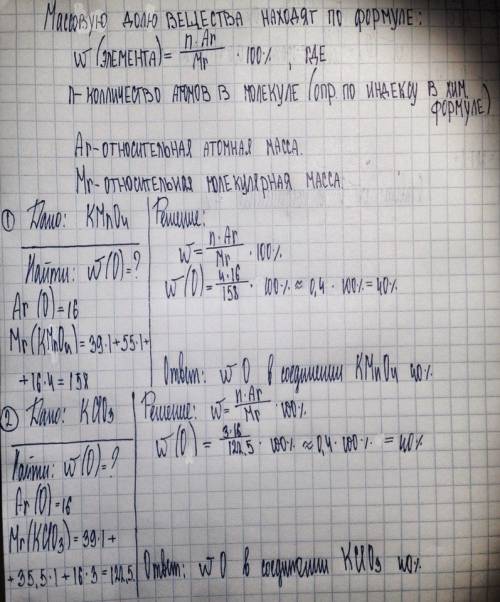 Массовую долю вещества находят по формуле:
w(элемента) = n·Ar/Mr · 100%, где
n - колличество атомов в молекуле (опр. по индексу в хим. формуле)
Ar - относительная атомная масса.
Mr - относительная молекулярная масса
① Дано: KMnO4
Найти: w(O)=?
Ar(O)=16
Mr(KMnO4)=39·1+55·1+
+16·4=158
Решение:
w = n·Ar/Mr · 100%
w(O) = 4·16/158 · 100% ≈ 0,4 · 100% = 40%
Ответ: w O в соединении KMnO4 40%
② Дано: KClO3
Найти: w(O)=?
Ar(O)=16
Mr(KClO3)=39·1+
+35,5·1+16·3=122,5.
Решение: w = n·Ar/Mr · 100%
w(O) = 3·16/122,5 · 100% ≈ 0,4 · 100% = 40%
Ответ: w O в соединении KClO3 40%